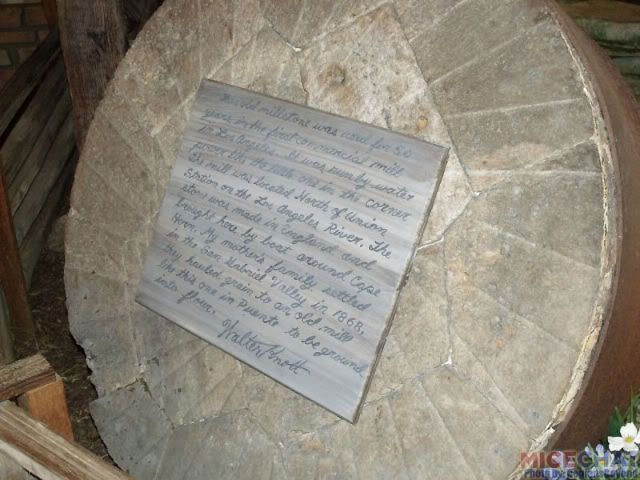 This old millstone was used for 50
years in the first commercial mill
in Los Angeles. It was run by water
power like the little one in the corner
The mill was located North of Union
Station on the Los Angeles River. The
stone was made in England and
brought here by boat around Cape
Horn. My mother's family settled
in the San Gabriel Valley in 1868,
they hauled grain to an old mill
like this one in Puente to be ground
into flour.
Walter Knott
MICECHAT
Photo by: